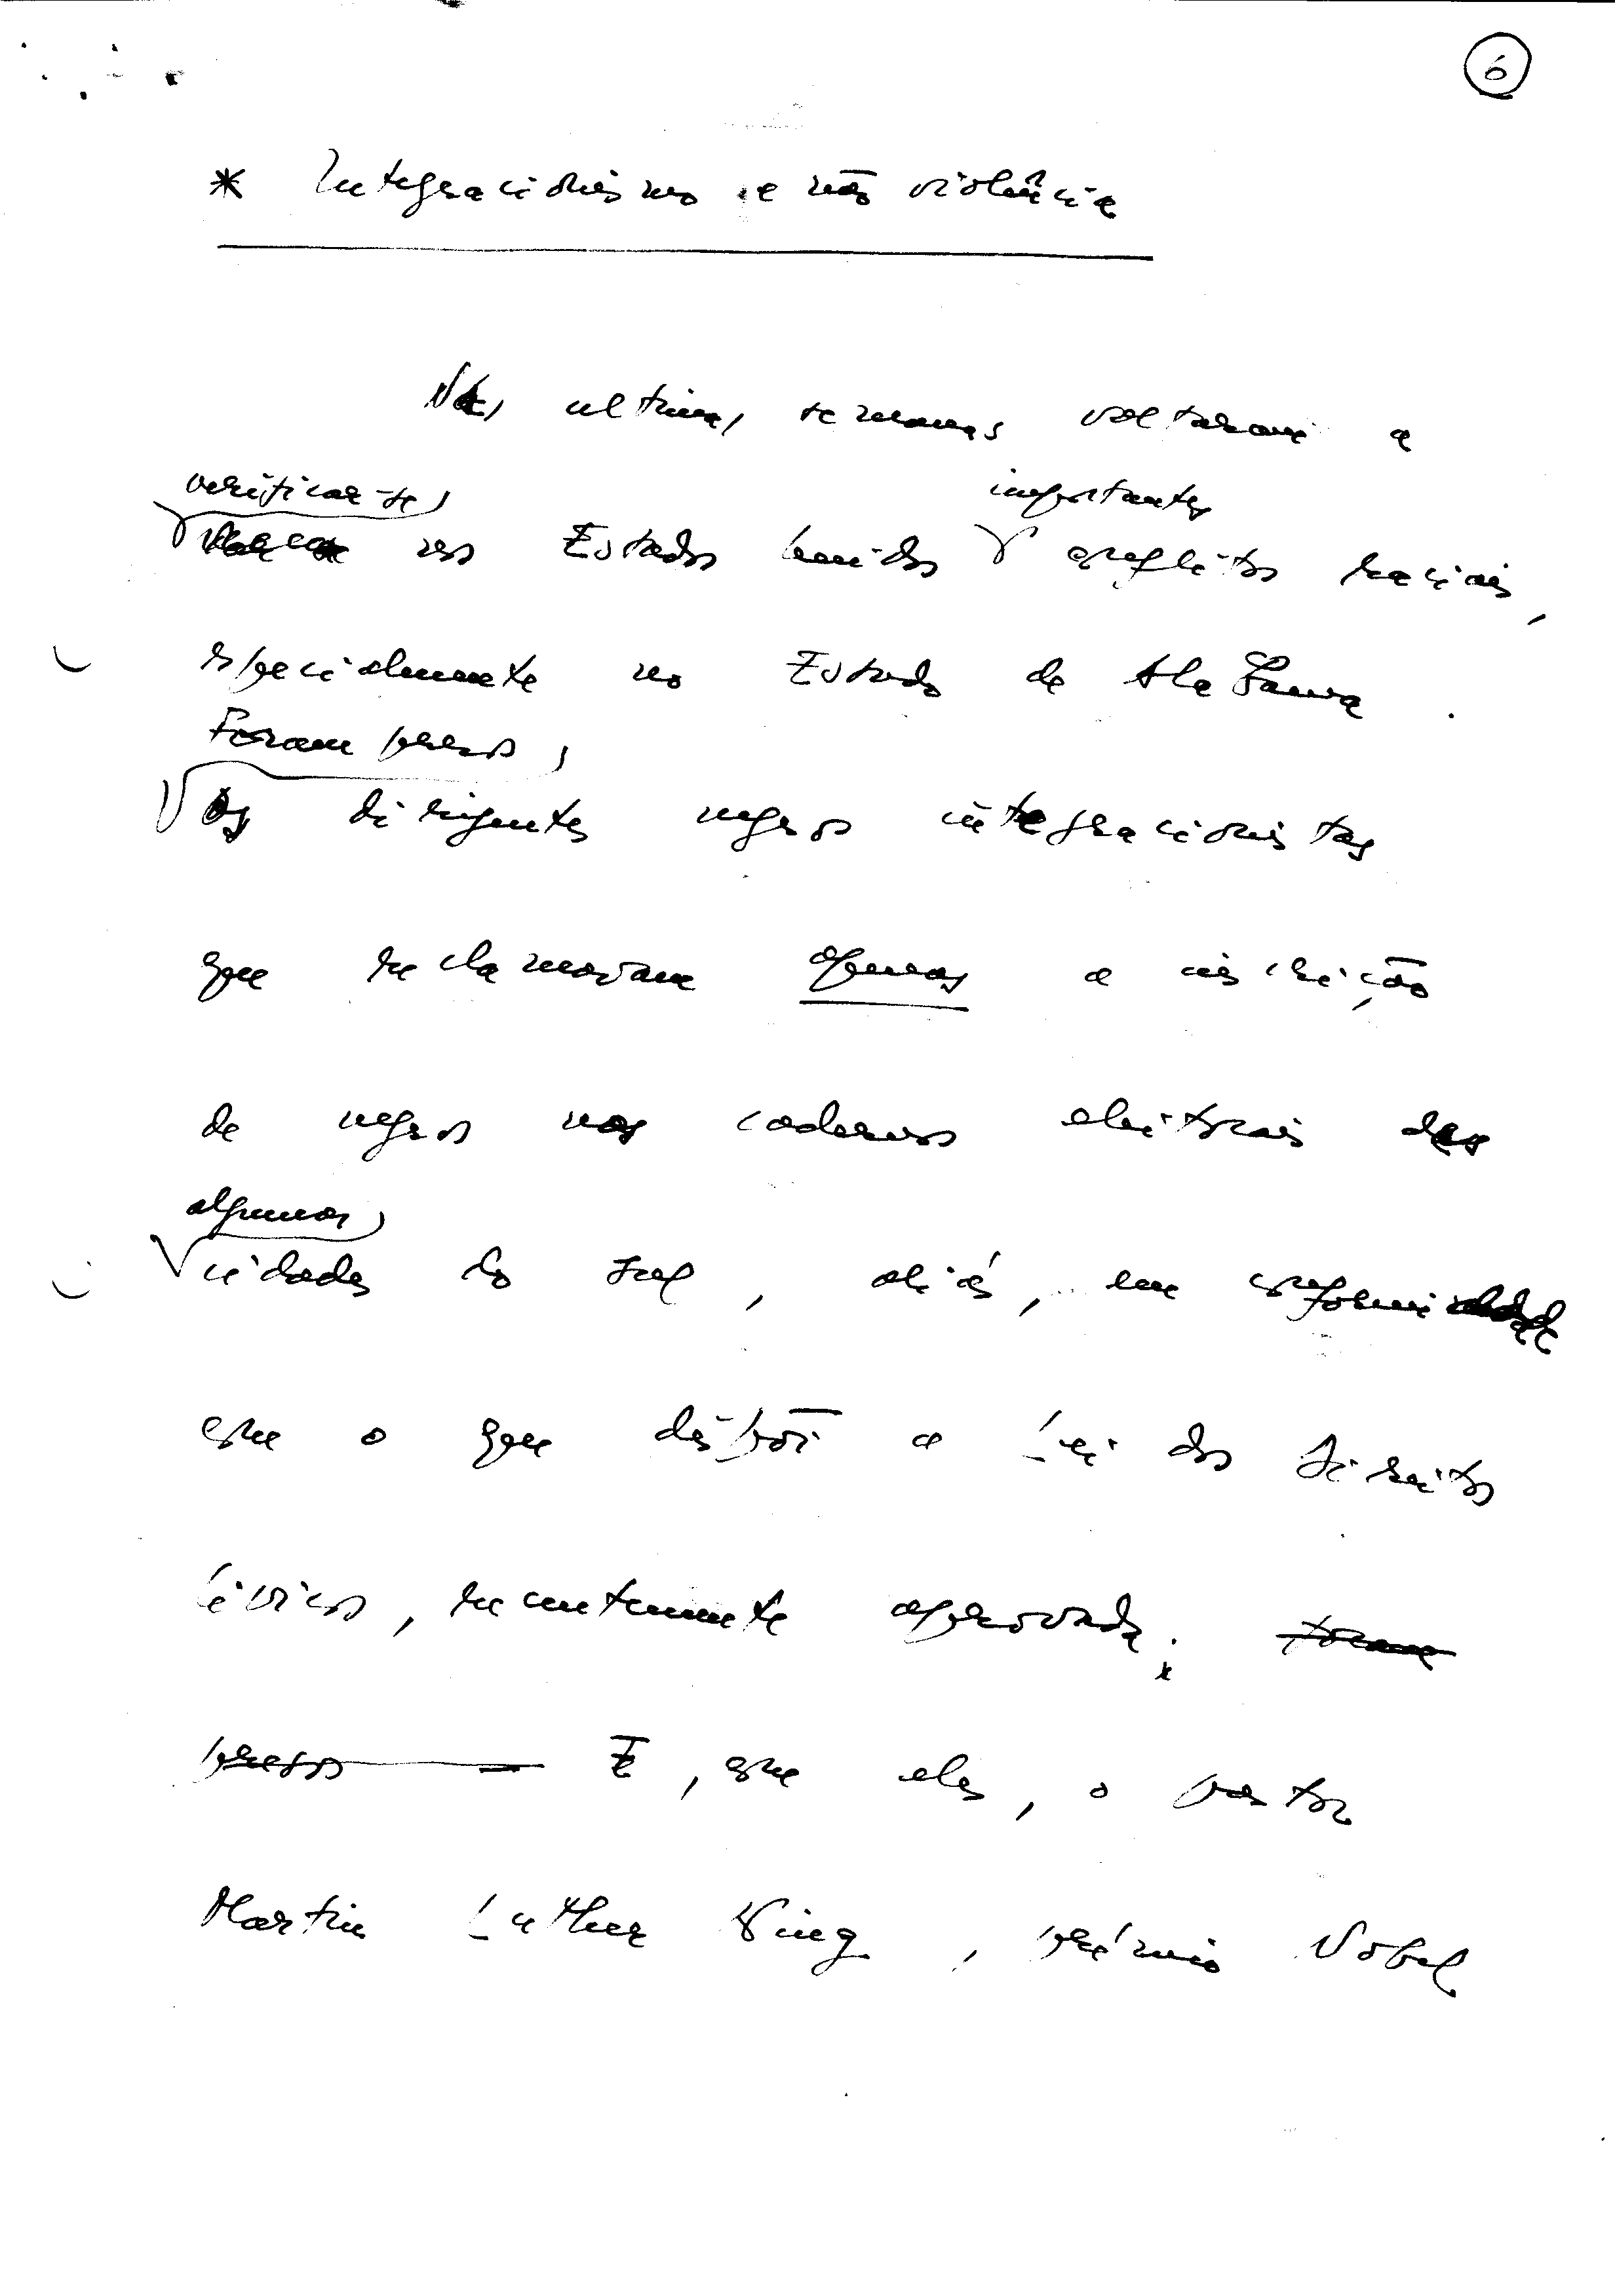 6
* Integracionismo e não violência
Nas ultimas semanas voltaram a
verificar-se importantes
nos Estados Unidos conflitos raciais,
especialmente no Estado de Alabama.
Foram presos
os dirigentes negros integracionistas
que reclamavam apenas a inscrição
de negros nos cadernos eleitorais de
algumas
cidades do sul, aliás, em conformidade
com o que dispõi a Lei dos Direitos
Cívicos, recentemente aprovada; foram
presos E, com eles, o pastor
Martin Luther King, prémio Nobel